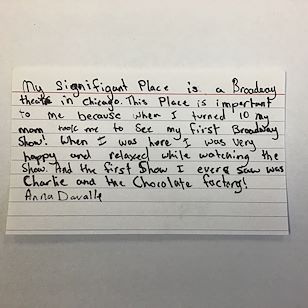 My Signifigant Place is a Broadway
theatre in Chicago. This Place is important
to me because when I turned 10 my
mom took me to See my first Broadway
Show! When I was here I was very
happy and relaxed while watching the
Show. And the first Show I ever saw was
Charlie and the Chocolate factory!
Anna Davalle